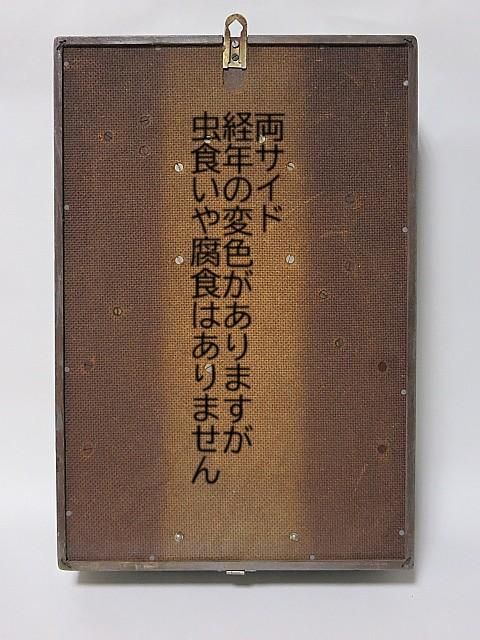 両サイド
経年の変色がありますが
虫食いや腐食はありません